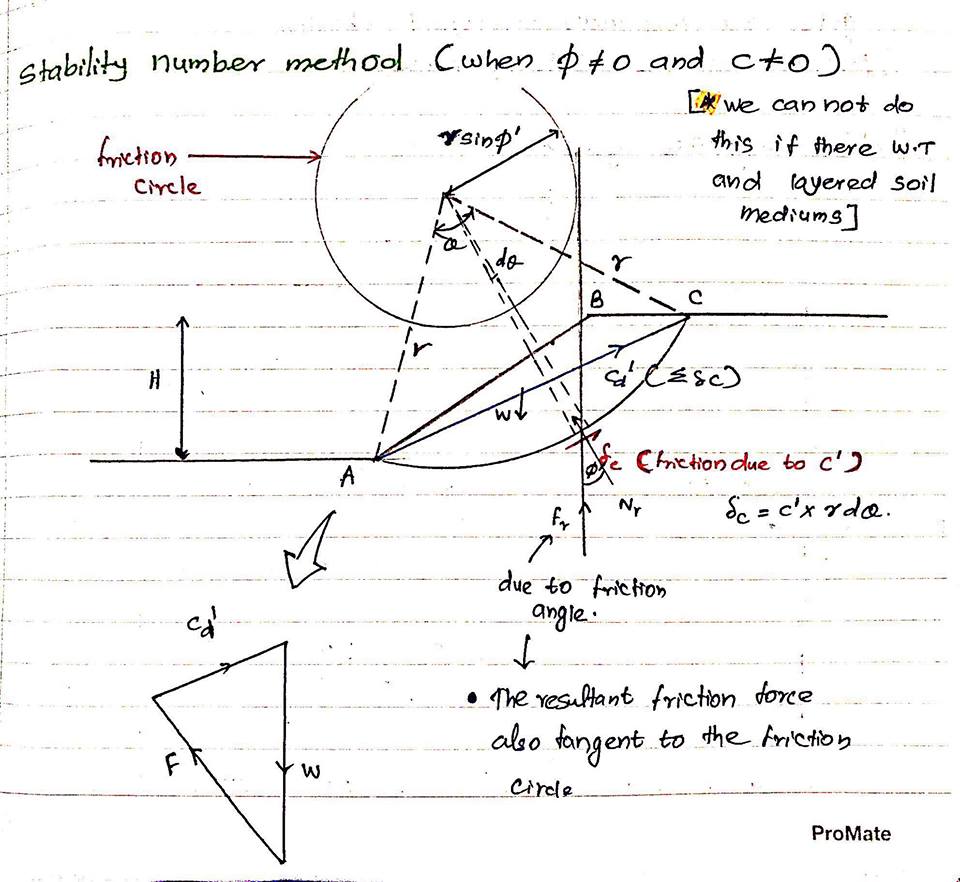 Stability number method (when φ ≠ 0 and c ≠ 0)
[* we can not do
this if there W.T
and layered soil
mediums]
friction
circle
r sinφ'
θ
dθ
r
r
B
C
H
Cd' (Σδc)
W
A
φ
δc (friction due to c')
Nr
δc = c' x r dθ.
Fr
due to friction
angle.
Cd'
F
W
• The resultant friction force
also tangent to the friction
circle
ProMate